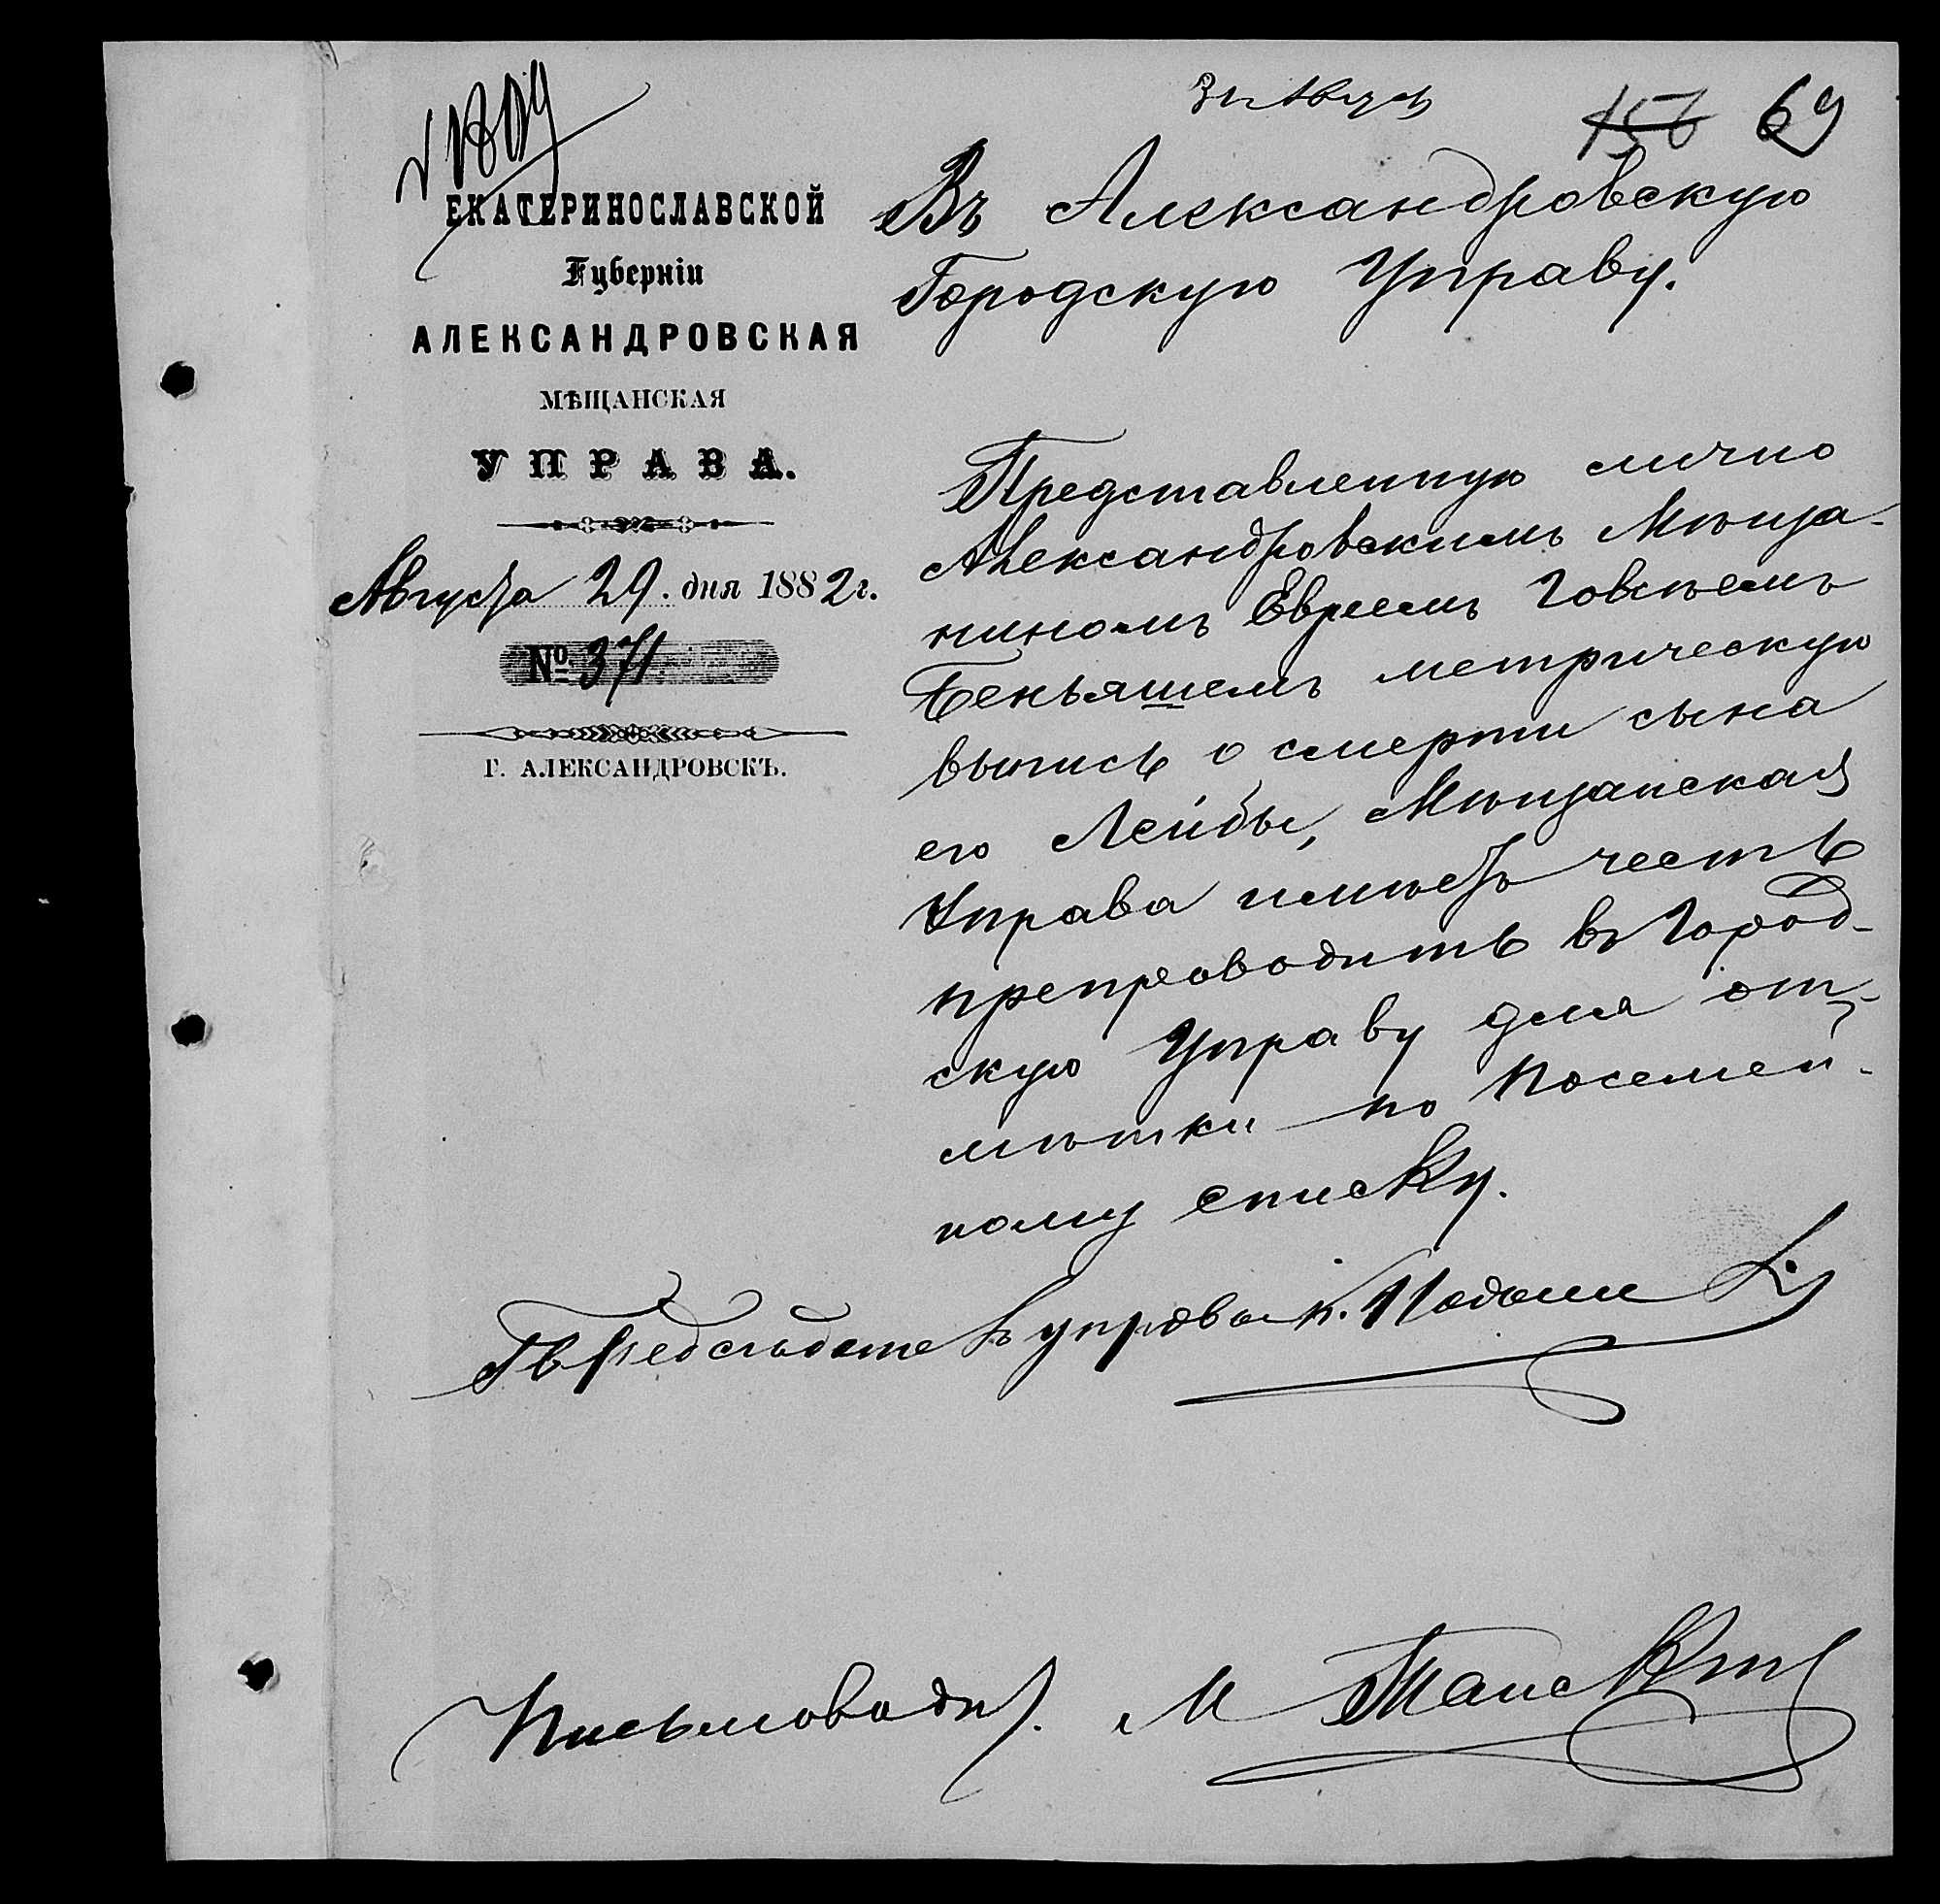 156 69
ЕКАТЕРИНОСЛАВСКОЙ
Губерніи
АЛЕКСАНДРОВСКАЯ
МѢЩАНСКАЯ
УПРАВА.
Августа 29. дня 1882 г.
№ 371
Г. АЛЕКСАНДРОВСКЪ.
Въ Александровскую
Городскую Управу.
Представленную лично
Александровскимъ Мѣща-
ниномъ Евреемъ Говсѣемъ
Беньяшемъ метрическую
выпись о смерти сына
его Лейбы, Мѣщанская
Управа имѣетъ честь
препроводить въ Город-
скую Управу для от-
мѣтки по посемей-
ному списку.
управы
Письмовод. М